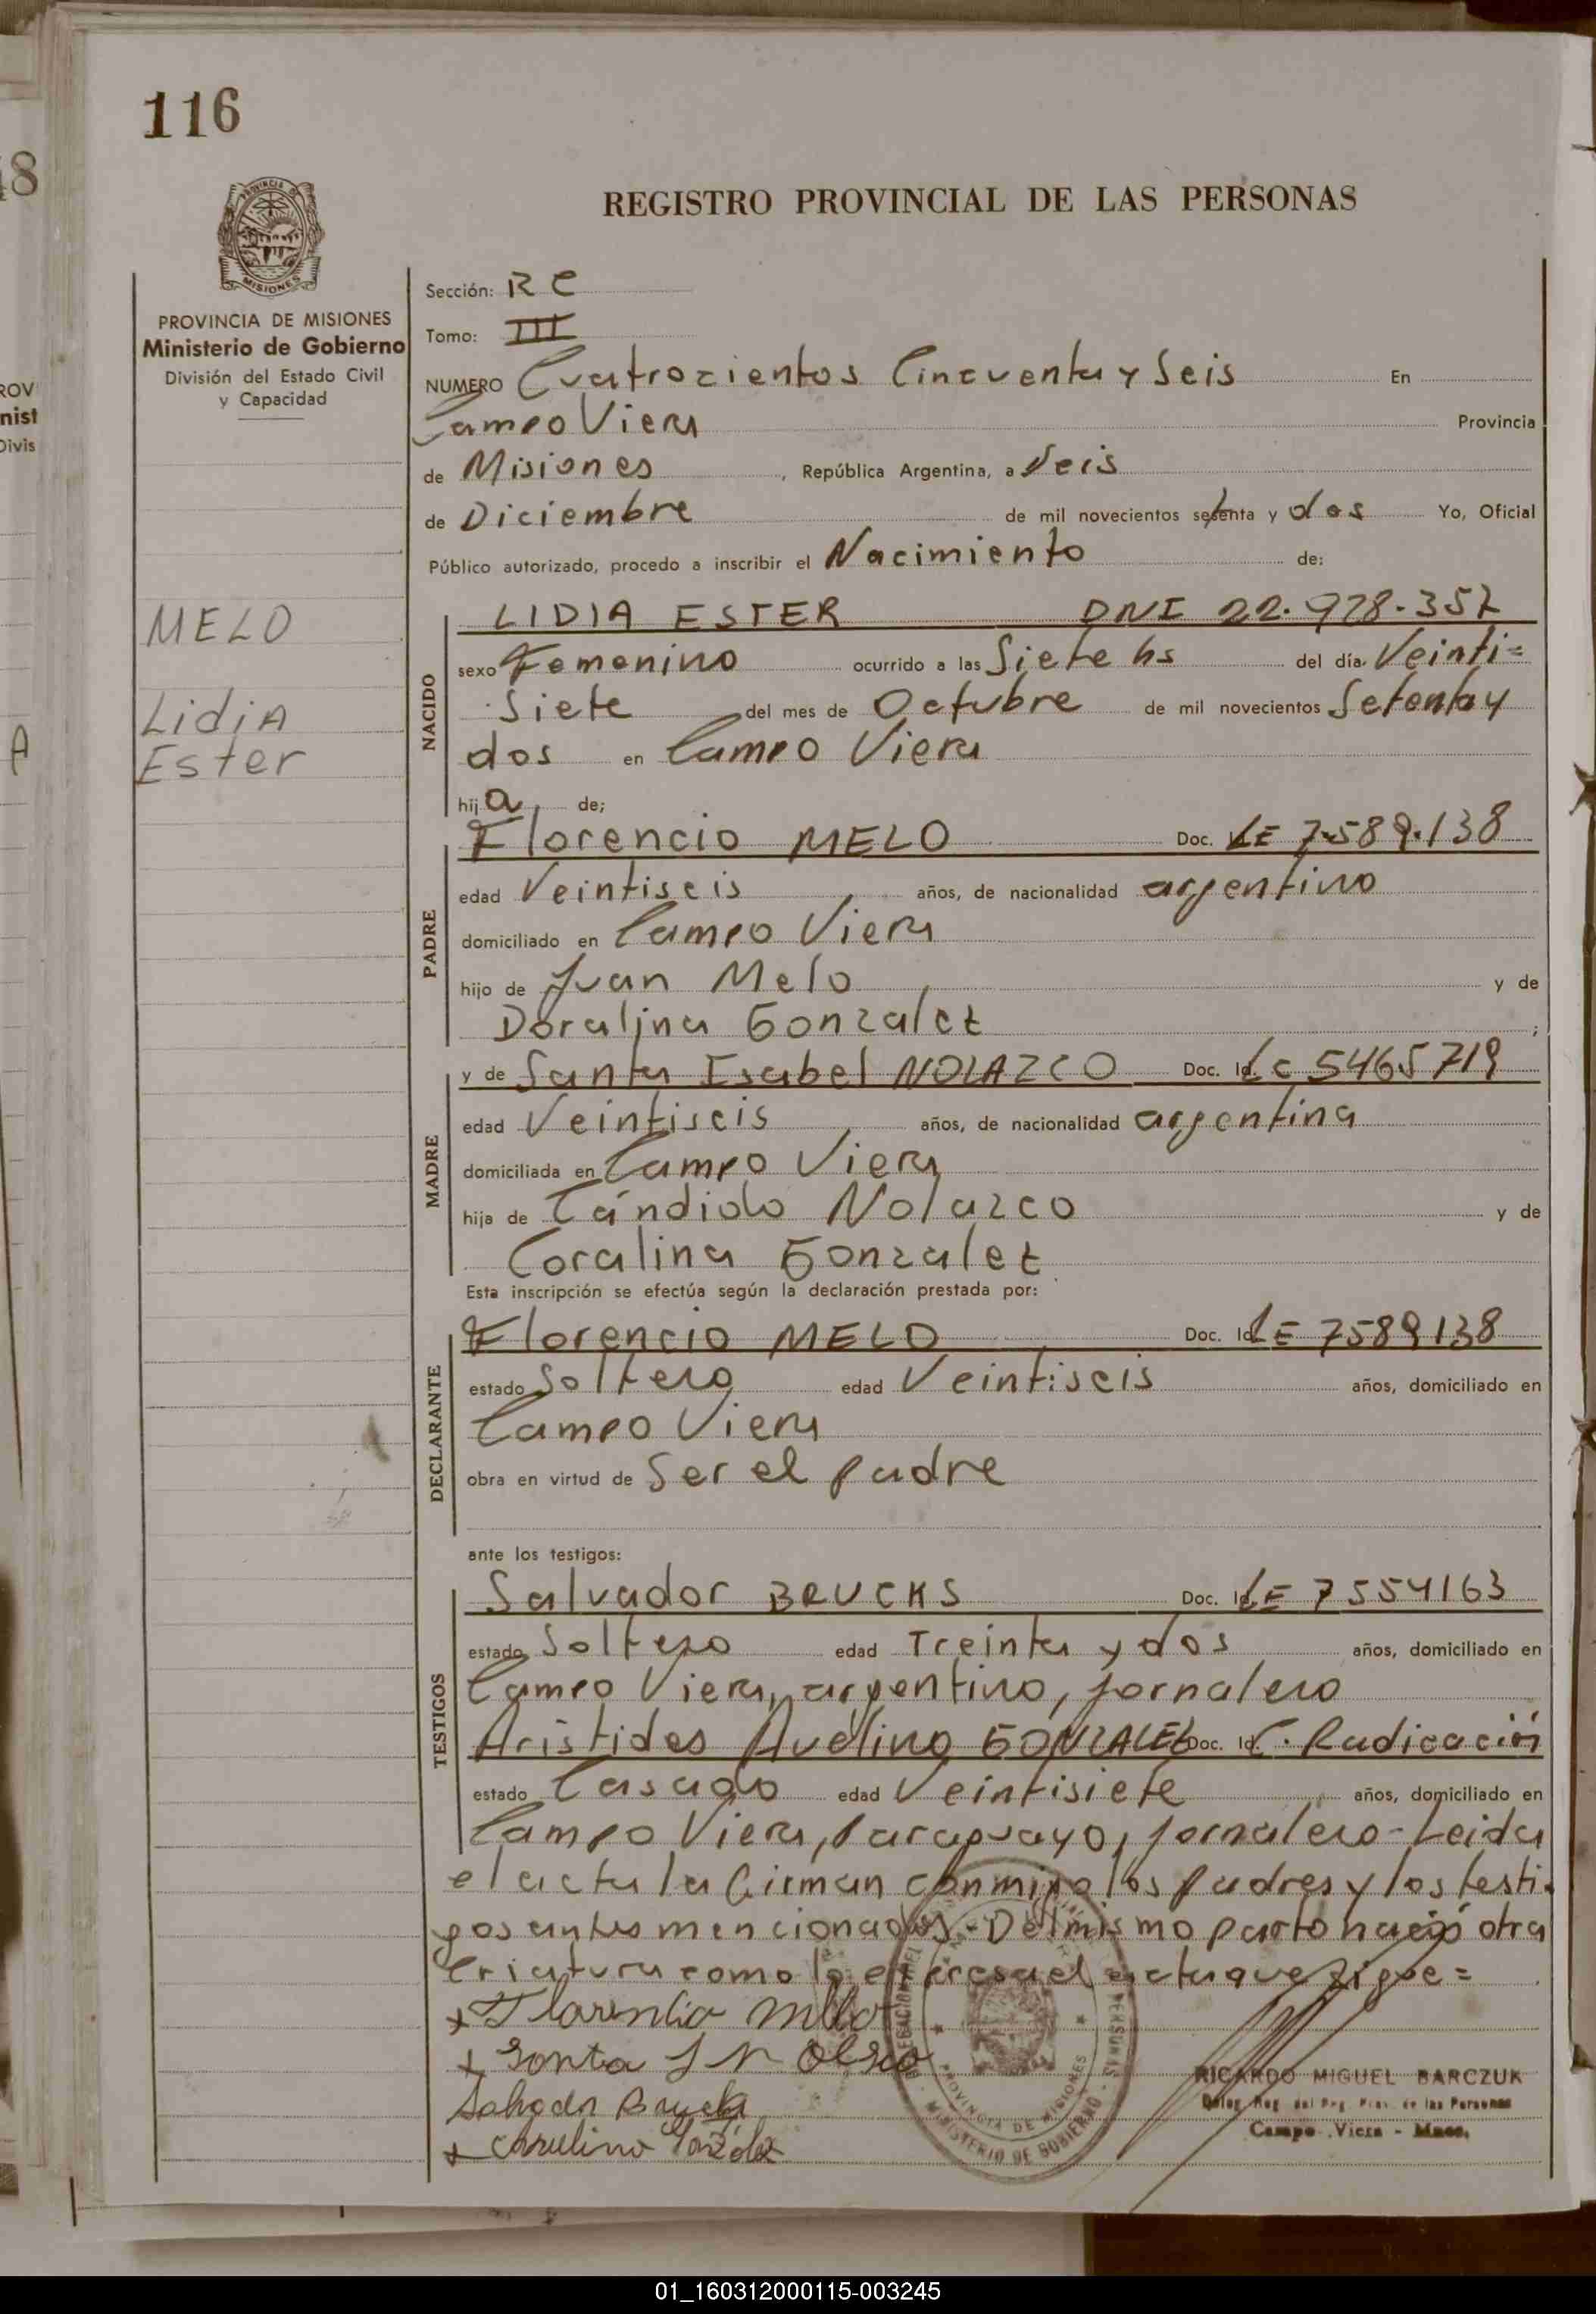 116
REGISTRO PROVINCIAL DE LAS PERSONAS
PROVINCIA DE MISIONES
Ministerio de Gobierno
División del Estado Civil
y Capacidad
Sección: R C
Tomo: III
NUMERO Cuatrocientos Cincuenta y Seis En
Campo Viera Provincia
de Misiones, República Argentina, a Seis
de Diciembre de mil novecientos setenta y dos Yo, Oficial
Público autorizado, procedo a inscribir el Nacimiento de:
MELO
Lidia
Ester
NACIDO
LIDIA ESTER DNI 22.978.357
sexo Femenino ocurrido a las Siete hs del día Veinti=
Siete del mes de Octubre de mil novecientos Setenta y
dos en Campo Viera
hija de;
PADRE
Florencio MELO Doc. LE 7.589.138
edad Veintiseis años, de nacionalidad argentino
domiciliado en Campo Viera
hijo de Juan Melo y de
Doralina Gonzalez ;
MADRE
y de Santa Isabel NOLAZCO Doc. Id. LC 5465719
edad Veintiseis años, de nacionalidad argentina
domiciliada en Campo Viera
hija de Cándido Nolazco y de
Coralina Gonzalez
Esta inscripción se efectúa según la declaración prestada por:
DECLARANTE
Florencio MELO Doc. Id. LE 7589138
estado Soltero edad Veintiseis años, domiciliado en
Campo Viera
obra en virtud de Ser el padre
ante los testigos:
TESTIGOS
Salvador BRUCKS Doc. Id. LE 7554163
estado Soltero edad Treinta y dos años, domiciliado en
Campo Viera, argentino, jornalero
Aristides Avelino GONZALEZ Doc. Id. C. Radicación
estado Casado edad Veintisiete años, domiciliado en
Campo Viera, paraguayo, jornalero - Leida
el acta la firman conmigo los padres y los testi-
gos antes mencionados - Del mismo parto nació otra
Criatura como lo expresa el acta que sigue =
Santa
Salvador Brucks
RICARDO MIGUEL BARCZUK
Campo Viera - Mnes.
PROVINCIA DE MISIONES
MINISTERIO DE GOBIERNO
01_160312000115-003245